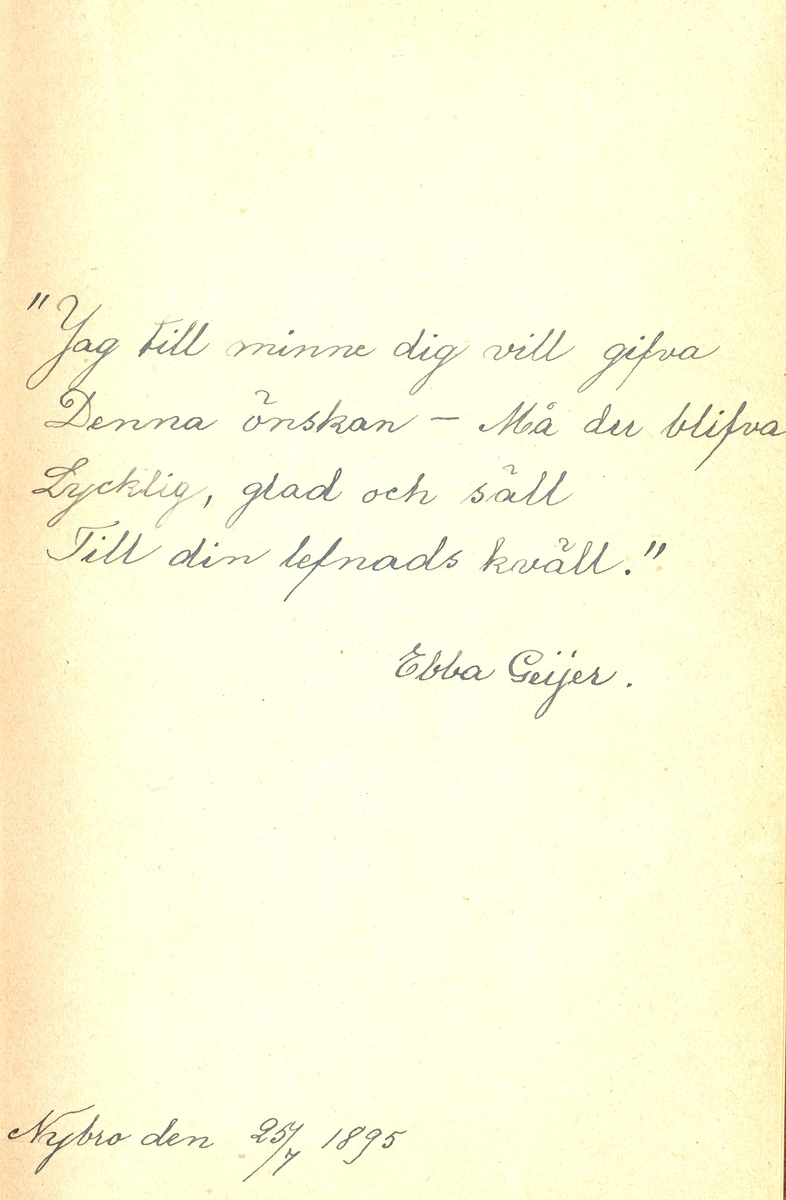 "Jag till minne dig vill gifva
Denna önskan – Må du blifva
Lycklig, glad och säll
Till din lefnads kväll."
Ebba Geijer.
Nybro den 25/7 1895